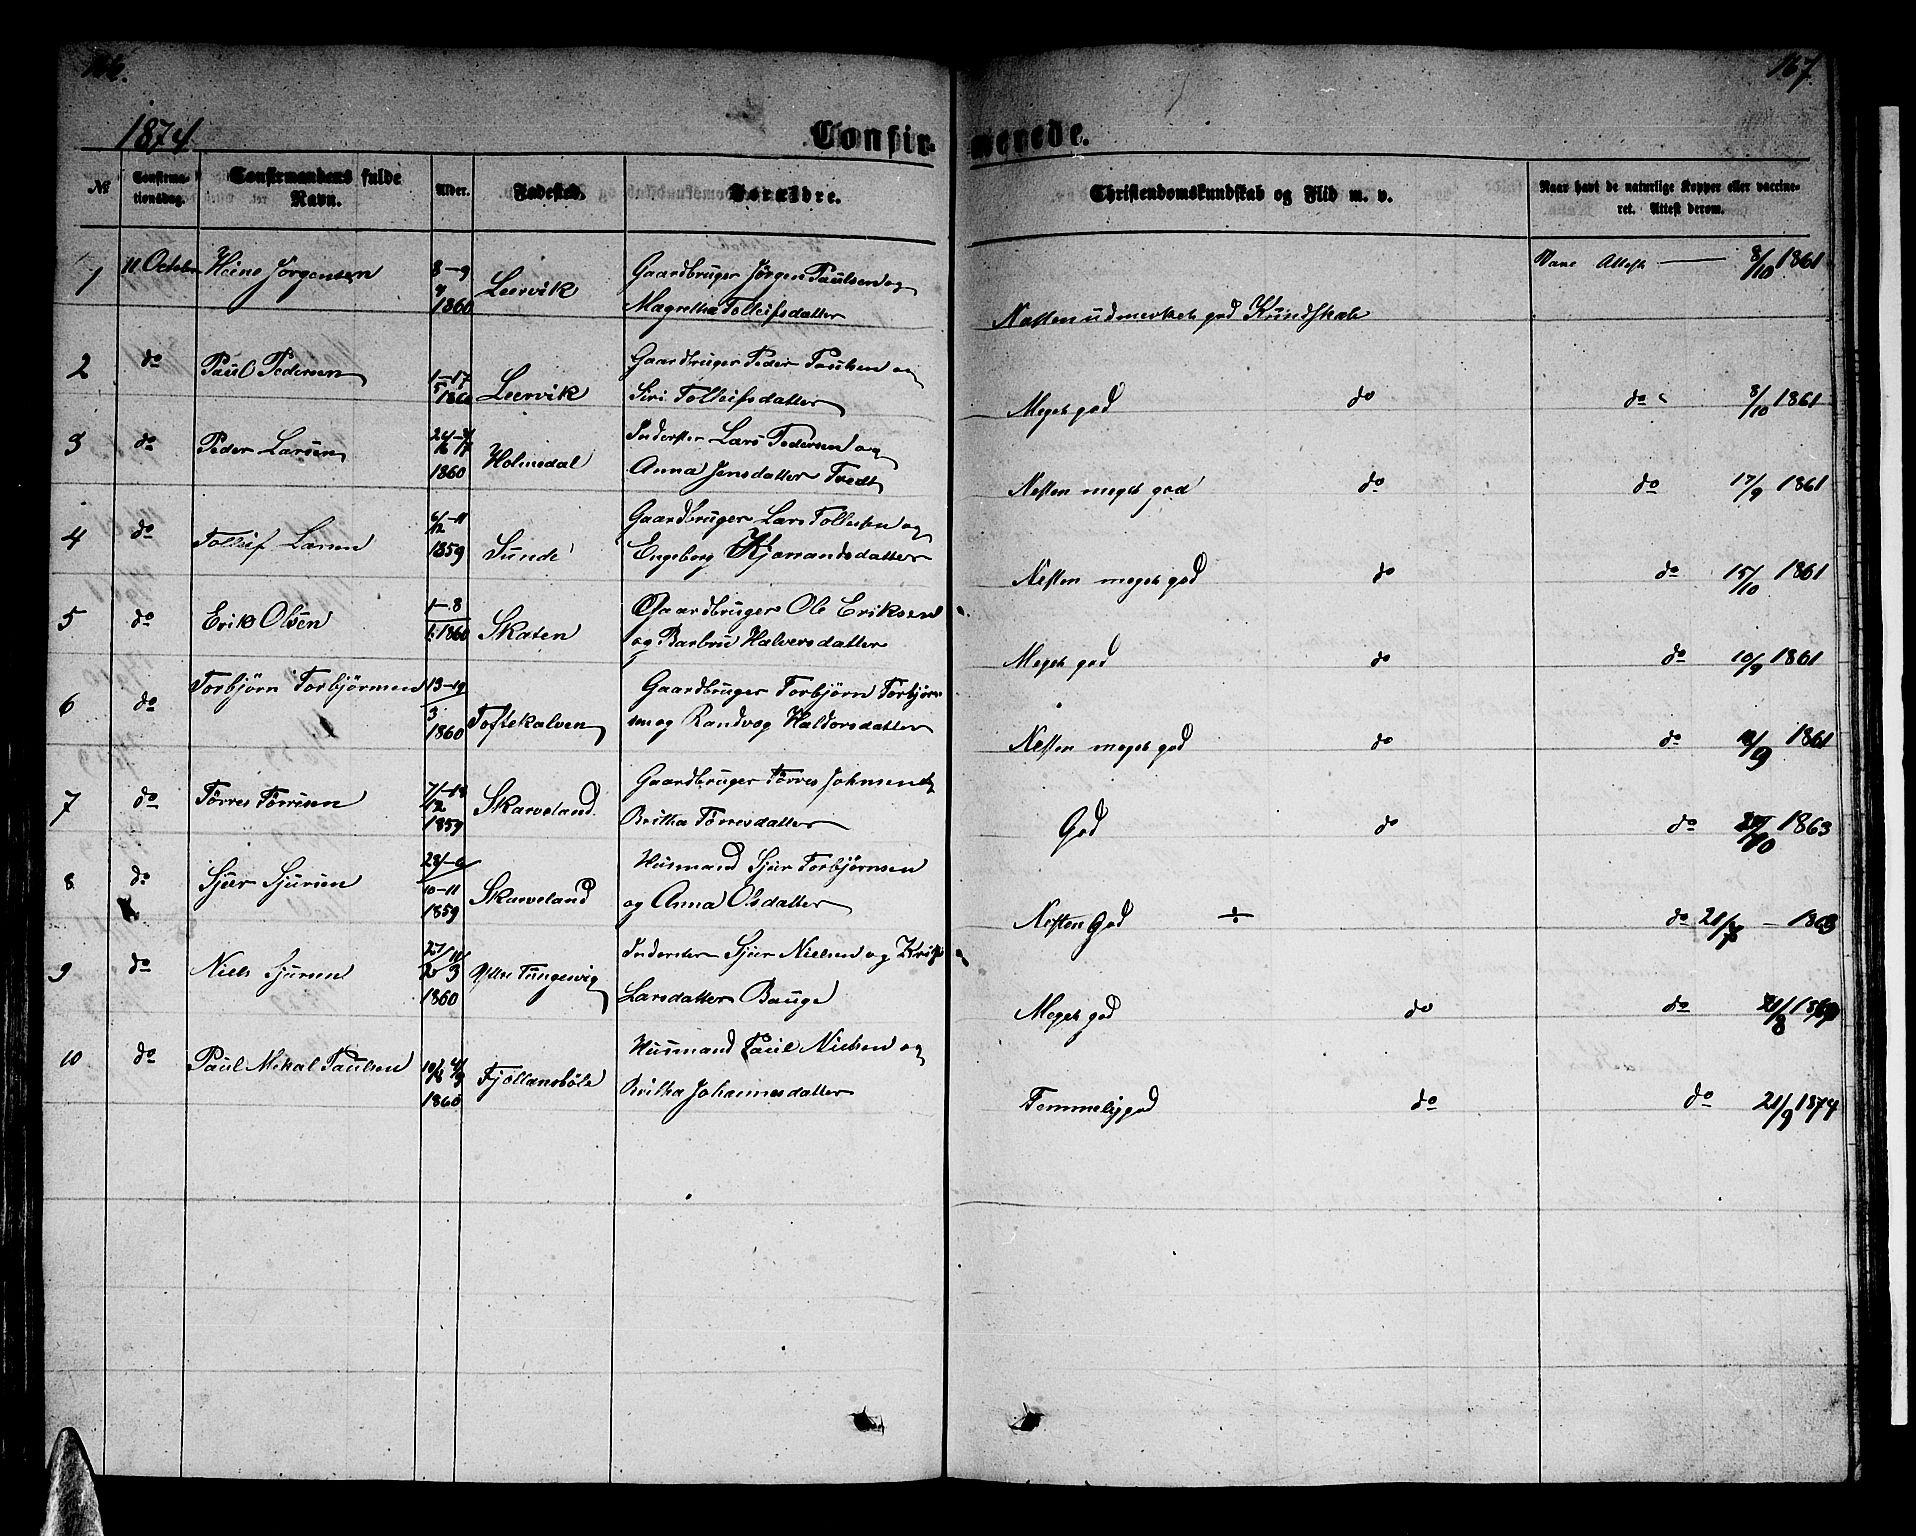 166.
167.
1874
Confirmerede.
No
Confirmationsdag.
Confirmandens fulde Navn.
Alder.
Fødested.
Forældre.
Christendomskundskab og Flid m. v.
Naar havt de naturlige Kopper eller vaccineret. Attest derom.
1 11 October Heine Jørgensen 8-9 1860 Leervik Gaardbruger Jørgen Paulsen og
Magretha Tolleifsdatter Nesten udmerket god Kundskab Vac Attest — 8/10 1861
2 do Paul Pedersen 1-17 5 1860 Leervik Gaardbruger Peder Paulsen og
Siri Tolleifsdatter Meget god do do 8/10 1861
3 do Peder Larsen 1860 Holmedal Inderster Lars Pedersen og
Anna Jensdatter Tredt Nesten meget god do do 17/9 1861
4 do Tolleif Larsen 6/12-11 1859 Sunde Gaardbruger Lars Tolleifsen og
Engeborg Kjonandsdatter Nesten meget god do do 15/10 1861
5 do Erik Olsen 1-8 1860 Skaten Gaardbruger Ole Eriksen
og Barbru Halversdatter Meget god do do 10/9 1861
6 do Torbjørn Torbjørnsen 13-19 3 1860 Toftekalven Gaardbruger Torbjørn Torbjørn
sen og Randvog Haldorsdatter Nesten meget god do do /9 1861
7 do Tørres Tørrisen 7/12 1859 Skarveland Gaardbruger Tørres Johnsen og
Britha Tørresdatter God do do /10 1863
8 do Sjur Sjursen 23/-6 10-11 1859 Skarveland Husmand Sjur Torbjørnsen
og Anna Olsdatter Nesten God ÷ do 21/ - 1863
9 do Niels Sjursen 27/2 11/3 1860 Ytre Tungesvig Inderster Sjur Nielsen og
Larsdatter Bauge Meget god do do 21/8
10 do Paul Mikal Paulsen 1860 Fjøllansbøle Husmand Paul Nielsen og
Britha Johannesdatter Temmelig god do do 21/9 1874